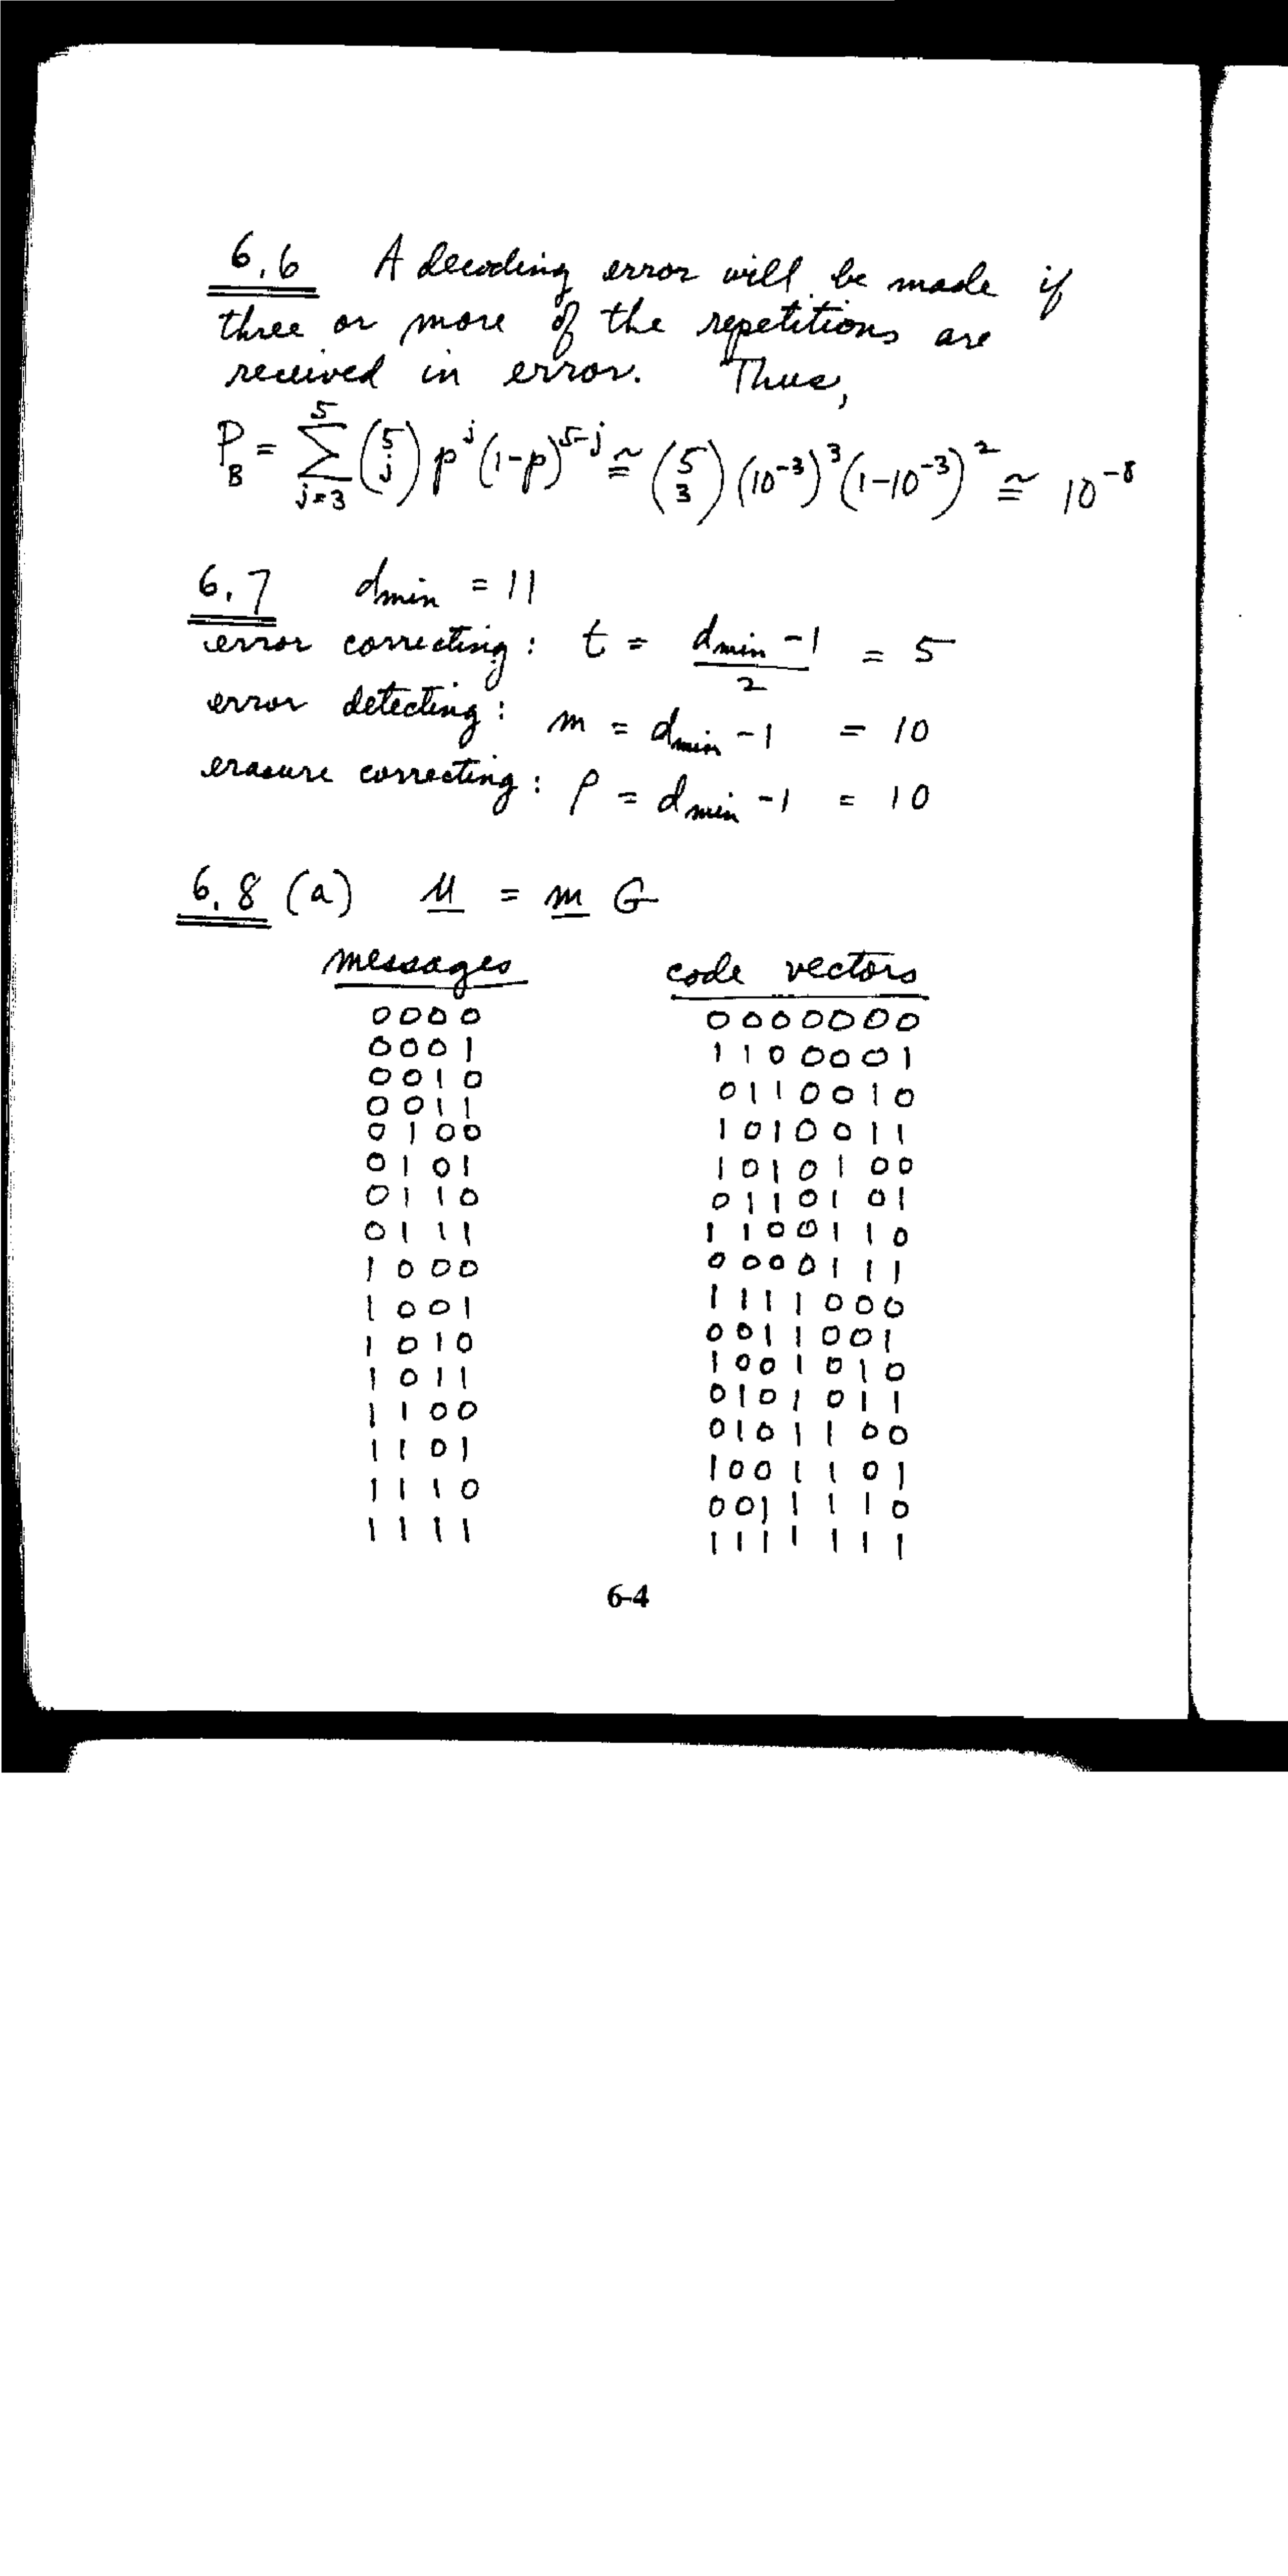 6.6 A decoding error will be made if
three or more of the repetitions are
received in error. Thus,
P_B = \sum_{j=3}^{5} \binom{5}{j} p^j (1-p)^{5-j} ≅ \binom{5}{3} (10^{-3})^3 (1-10^{-3})^2 ≅ 10^{-8}
6.7 d_min = 11
error correcting : t = (d_min - 1)/2 = 5
error detecting : m = d_min - 1 = 10
erasure correcting : ρ = d_min - 1 = 10
6.8 (a) U = m G
messages code vectors
0000 0000000
0001 1100001
0010 0110010
0011 1010011
0100 1010100
0101 0110101
0110 1100110
0111 0000111
1000 1111000
1001 0011001
1010 1001010
1011 0101011
1100 0101100
1101 1001101
1110 0011110
1111 1111111
6-4